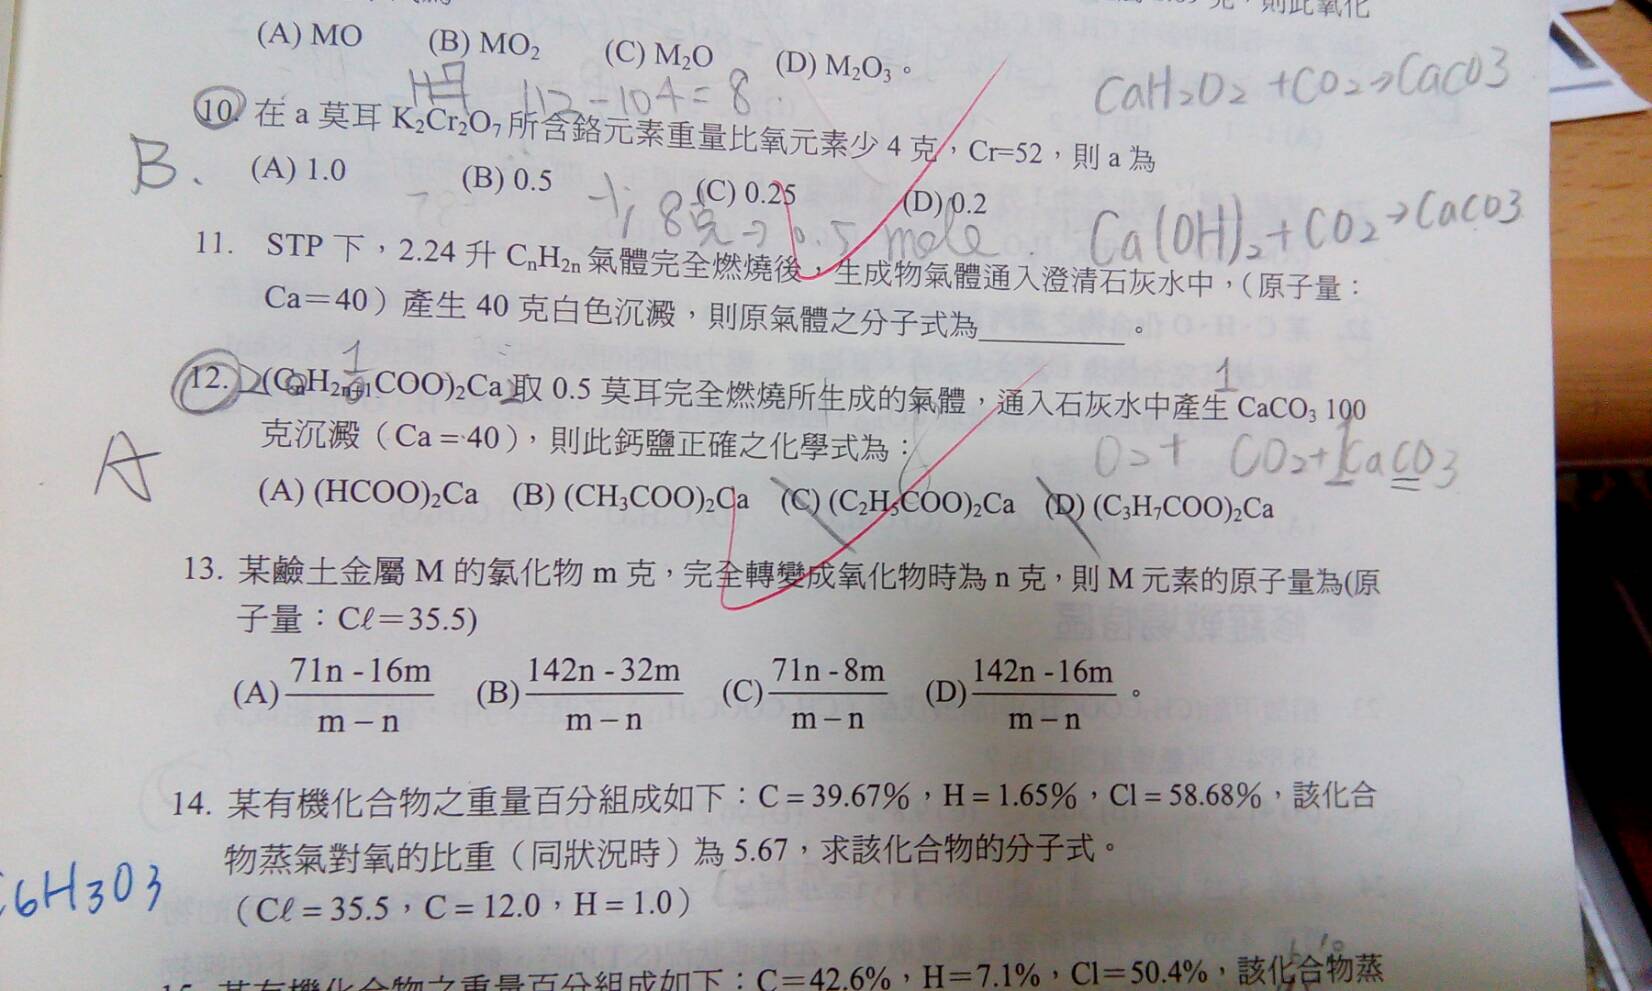 克，則此氧化
(A) MO (B) MO₂ (C) M₂O (D) M₂O₃。
CaH₂O₂ + CO₂ → CaCO3
112 - 104 = 8
10. 在 a 莫耳 K₂Cr₂O₇ 所含鉻元素重量比氧元素少 4 克，Cr=52，則 a 為
B.
(A) 1.0 (B) 0.5 (C) 0.25 (D) 0.2
8克 → 0.5 mole.
Ca(OH)₂ + CO₂ → CaCO3
11. STP 下，2.24 升 CₙH₂ₙ 氣體完全燃燒後，生成物氣體通入澄清石灰水中，（原子量：
Ca＝40）產生 40 克白色沉澱，則原氣體之分子式為________。
1
1
12. (CₙH₂ₙ₊₁COO)₂Ca 取 0.5 莫耳完全燃燒所生成的氣體，通入石灰水中產生 CaCO₃ 100
克沉澱（Ca＝40），則此鈣鹽正確之化學式為：
A
O₂+ CO₂+1CaCO3
(A) (HCOO)₂Ca (B) (CH₃COO)₂Ca (C) (C₂H₅COO)₂Ca (D) (C₃H₇COO)₂Ca
13. 某鹼土金屬 M 的氯化物 m 克，完全轉變成氧化物時為 n 克，則 M 元素的原子量為(原
子量：Cℓ＝35.5)
(A) (71n - 16m)/(m – n) (B) (142n - 32m)/(m – n) (C) (71n - 8m)/(m – n) (D) (142n - 16m)/(m – n)。
14. 某有機化合物之重量百分組成如下：C = 39.67%，H = 1.65%，Cl = 58.68%，該化合
物蒸氣對氧的比重（同狀況時）為 5.67，求該化合物的分子式。
C6H3O3
（Cℓ = 35.5，C = 12.0，H = 1.0）
15. 某有機化合物之重量百分組成如下：C＝42.6%，H＝7.1%，Cl＝50.4%，該化合物蒸